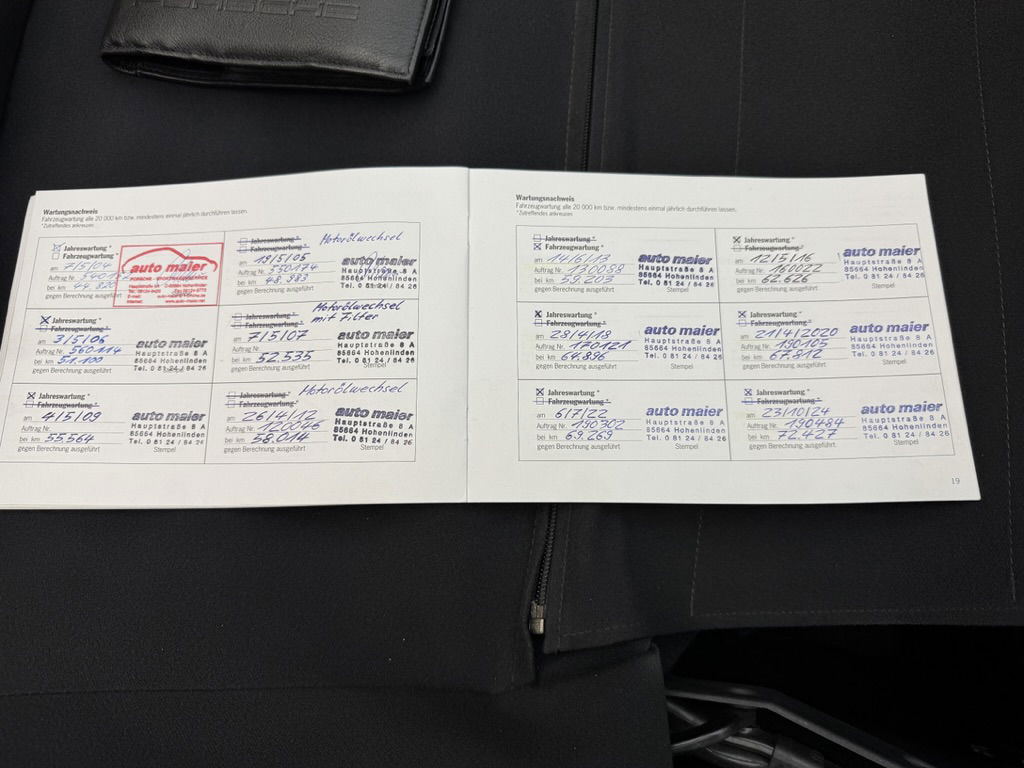 PORSCHE
Wartungsnachweis
Fahrzeugwartung alle 20 000 km bzw. mindestens einmal jährlich durchführen lassen.
*Zutreffendes ankreuzen
Jahreswartung *
Fahrzeugwartung *
am 7/5/04
Auftrag Nr.
bei km 44.820
gegen Berechnung ausgeführt
auto maier
Jahreswartung *
Fahrzeugwartung *
Motorölwechsel
am 13/5/05
Auftrag Nr. 550174
bei km 48.983
gegen Berechnung ausgeführt
auto maier
Hauptstraße 8 A
85664 Hohenlinden
Tel. 0 81 24 / 84 26
Jahreswartung *
Fahrzeugwartung *
am 3/5/06
Auftrag Nr. 560114
bei km 51.109
gegen Berechnung ausgeführt
auto maier
Hauptstraße 8 A
85664 Hohenlinden
Tel. 0 81 24 / 84 26
Jahreswartung *
Fahrzeugwartung *
Motorölwechsel
mit Filter
am 7/5/07
Auftrag Nr.
bei km 52.535
gegen Berechnung ausgeführt
auto maier
Hauptstraße 8 A
85664 Hohenlinden
Tel. 0 81 24 / 84 26
Stempel
Jahreswartung *
Fahrzeugwartung *
am 4/5/09
Auftrag Nr.
bei km 55.564
gegen Berechnung ausgeführt
auto maier
Hauptstraße 8 A
85664 Hohenlinden
Tel. 0 81 24 / 84 26
Stempel
Jahreswartung *
Fahrzeugwartung *
Motorölwechsel
am 26/4/12
Auftrag Nr. 120046
bei km 58.014
gegen Berechnung ausgeführt
auto maier
Hauptstraße 8 A
85664 Hohenlinden
Tel. 0 81 24 / 84 26
Stempel
Wartungsnachweis
Fahrzeugwartung alle 20 000 km bzw. mindestens einmal jährlich durchführen lassen.
*Zutreffendes ankreuzen
Jahreswartung *
Fahrzeugwartung *
am 14/6/13
Auftrag Nr. 130088
bei km 59.203
gegen Berechnung ausgeführt
auto maier
Hauptstraße 8 A
85664 Hohenlinden
Tel. 0 81 24 / 84 26
Stempel
Jahreswartung *
Fahrzeugwartung *
am 12/5/16
Auftrag Nr. 160022
bei km 62.626
gegen Berechnung ausgeführt
auto maier
Hauptstraße 8 A
85664 Hohenlinden
Tel. 0 81 24 / 84 26
Stempel
Jahreswartung *
Fahrzeugwartung *
am 23/4/18
Auftrag Nr. 170121
bei km 64.896
gegen Berechnung ausgeführt
auto maier
Hauptstraße 8 A
85664 Hohenlinden
Tel. 0 81 24 / 84 26
Stempel
Jahreswartung *
Fahrzeugwartung *
am 21/4/2020
Auftrag Nr. 190105
bei km 67.812
gegen Berechnung ausgeführt
auto maier
Hauptstraße 8 A
85664 Hohenlinden
Tel. 0 81 24 / 84 26
Stempel
Jahreswartung *
Fahrzeugwartung *
am 6/7/22
Auftrag Nr. 190302
bei km 69.269
gegen Berechnung ausgeführt
auto maier
Hauptstraße 8 A
85664 Hohenlinden
Tel. 0 81 24 / 84 26
Stempel
Jahreswartung *
Fahrzeugwartung *
am 23/10/24
Auftrag Nr. 190484
bei km 72.427
gegen Berechnung ausgeführt
auto maier
Hauptstraße 8 A
85664 Hohenlinden
Tel. 0 81 24 / 84 26
Stempel
19